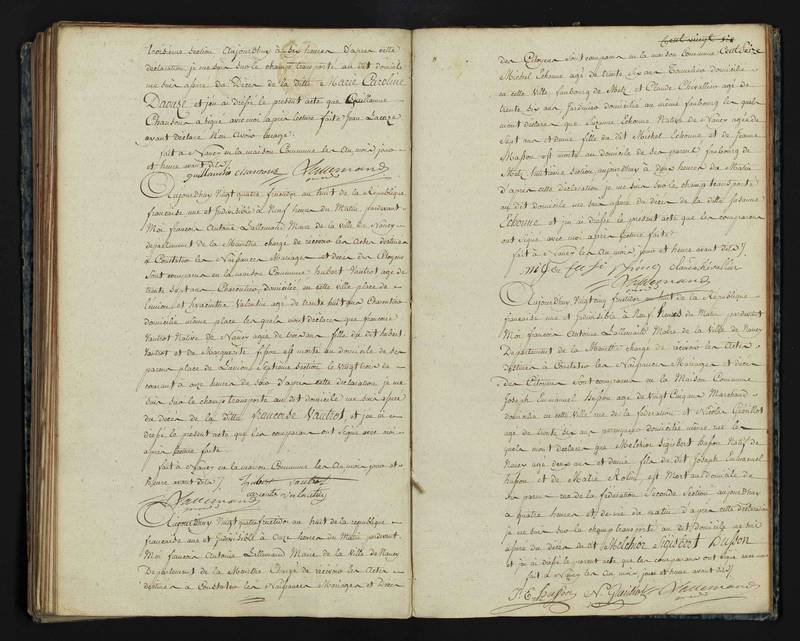 troisieme section aujourdhuy à dix heures d'apres cette
declaration je me suis sur le champ transporté au dit domicile
me suis assuré du Deces de la ditte Marie Caroline
et jen ai dressé le present acte que Guillaume
Chanson a signé avec moi apres lecture faite Jean Lacaze
ayant declaré Non Avoir lusage
fait à Nancy en la maison Commune les An mois jour
et heure avant dits /.
Lallemand
Aujourdhuy Vingt quatre fructidor an huit de la Republique
française une et indivisible à Neuf heures du Matin pardevant
Moi françois Antoine Lallemand Maire de la Ville de Nancy
departement de la Meurthe chargé de recevoir les Actes destinés
à Constater les Naissances Mariages et deces des Citoyens
sont comparus en la maison Commune hubert Vautrot agé de
trente sept ans Charentier, domicilié en cette ville place de
l'union et hyacinthe Valentin agé de trente huit ans Charentier
domicilié même place les quels mont declaré que françoise
Vautrot Native de Nancy agée de fille du dit hubert
Vautrot et de Marguerite est morte au domicile de ses
parens place de l'union Septieme Section le Vingt trois du
courant à onze heures du soir d'apres cette declaration je me
suis sur le champ transporté au dit domicile me suis assuré
du deces de la ditte francoise Vautrot, et jen ai
dressé le présent acte que les comparans ont signé avec moi
apres lecture faite
fait à Nancy en la maison Commune les An mois jour et
heure avant dits /. hubert vautrot
Lallemand
Aujourdhuy Vingt quatre fructidor an huit de la republique
française une et indivisible à Onze heures du Matin pardevant
Moi françois Antoine Lallemand Maire de la Ville de Nancy
Departement de la Meurthe Chargé de recevoir les Actes
destinés a Constater les Naissances Mariages et Deces
Cent Seize
des Citoyens sont comparus en la maison Commune
Michel Echonne agé de trente six ans Tonnelier domicilié
en cette ville faubourg de Metz et Claude Chevallier agé de
trente six ans Jardinier domicilié au même faubourg les quels
mont declaré que Suzanne Echonne Native de Nancy agée de
Sept ans et demie fille du dit Michel Echonne et de Jeanne
Masson est morte au domicile de ses parens faubourg de
Metz huitieme Section aujourdhuy à deux heures du Matin
d'apres cette declaration je me suis sur le champ transporté
au dit domicile me suis assuré du deces de la ditte Susanne
Echonne et jen ai dressé le present acte que les comparans
ont signé avec moi apres lecture faite
fait à Nancy les An mois jour et heure avant dits /.
Claude Chevallier
Lallemand
Aujourdhuy Vingt cinq fructidor an huit de la Republique
française une et indivisible à Neuf heures du Matin pardevant
Moi françois Antoine Lallemand Maire de la Ville de Nancy
Departement de la Meurthe chargé de recevoir les Actes
destinés a Constater les Naissances Mariages et deces
des Citoyens sont comparus en la Maison Commune
Joseph Emanuel Husson agé de Vingt Cinq ans Marchand
domicilié en cette ville rue de la féderation et Nicolas
agé de trente six ans perruquier domicilié même rue les
quels mont declaré que Melchior Sigisbert husson Natif de
Nancy agé deux ans et demie fils du dit Joseph Emanuel
husson et de Marie Rolin est Mort au domicile de
ses parens rue de la féderation Seconde Section aujourdhuy
a quatre heures et demie du matin d'apres cette declaration
je me suis sur le champ transporté au dit domicile me suis
assuré du deces du dit Melchior Sigisbert Husson
et jen ai dressé le present acte que les comparans ont signé avec moi
fait à Nancy les an mois jour et heure avant dits /.
J. E. husson N. Lallemand